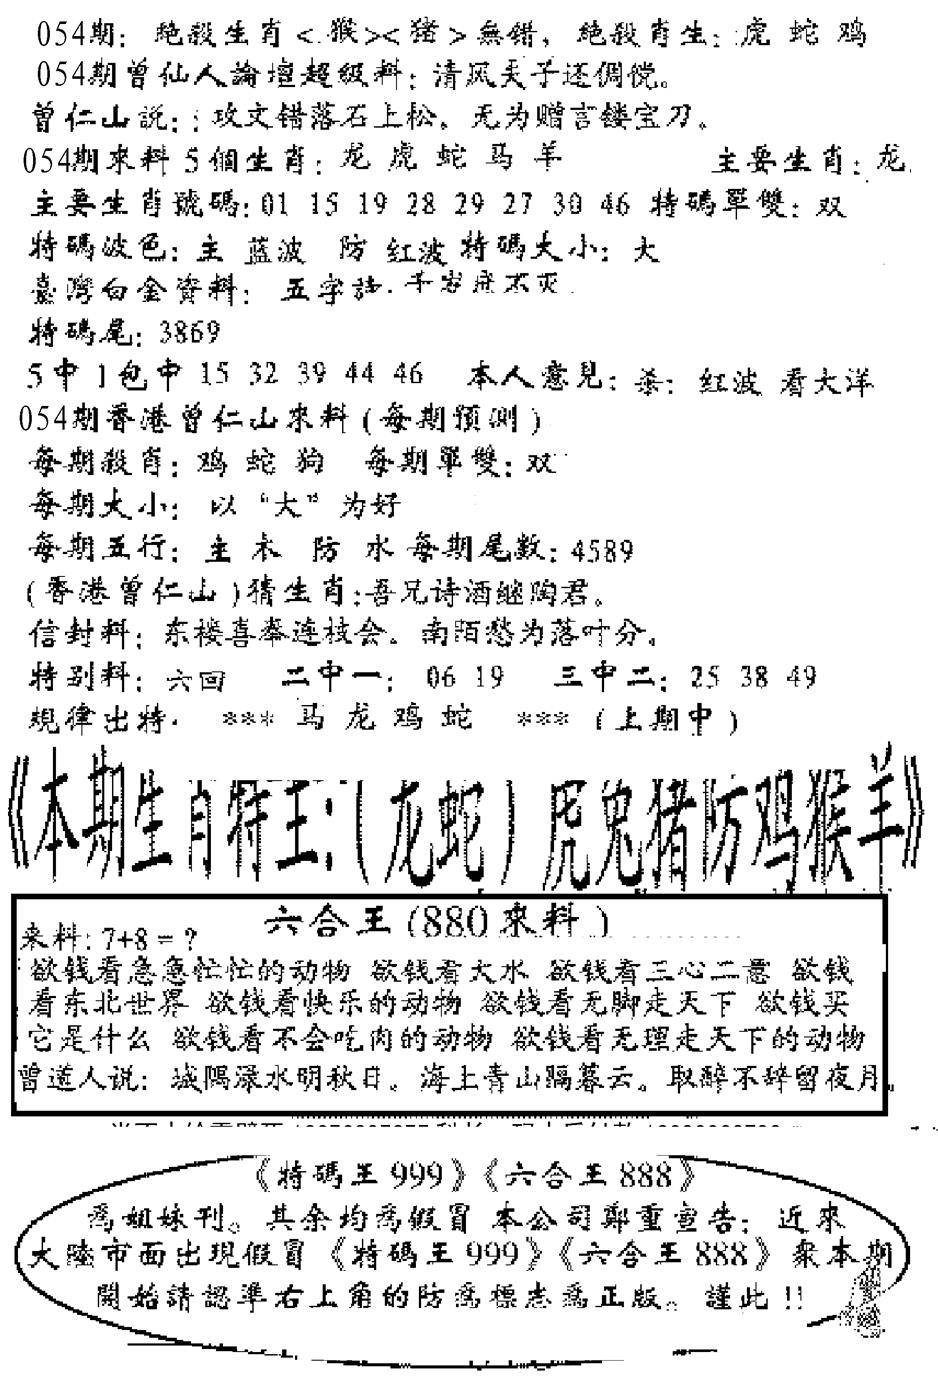 054期: 绝殺生肖<猴><猪>無错, 绝殺肖生: 虎 蛇 鸡
054期曾仙人論壇超級料: 清风天子还倜傥。
曾仁山説: 攻文错落石上松。无为赠言镂宝刀。
054期來料 5個生肖: 龙 虎 蛇 马 羊 主要生肖: 龙
主要生肖號碼: 01 15 19 28 29 27 30 46 特碼單雙: 双
特碼波色: 主 蓝波 防 红波 特碼大小: 大
臺灣白金資料: 五字詩. 千岁底不灭
特碼尾: 3869
5中1包中 15 32 39 44 46 本人意見: 杀: 红波 看大洋
054期香港曾仁山來料(每期預測)
每期殺肖: 鸡 蛇 狗 每期單雙: 双
每期大小: 以“大”为好
每期五行: 主 木 防 水 每期尾數: 4589
(香港曾仁山)猜生肖:吾兄诗酒继陶君。
信封料: 东楼喜奉连枝会。南陌愁为落叶分。
特别料: 六回 二中一: 06 19 三中二: 25 38 49
規律出特. *** 马 龙 鸡 蛇 *** (上期中)
《本期生肖特王:(龙蛇)虎兔猪防鸡猴羊》
六合王(880來料)
来料: 7+8=?
欲钱看急急忙忙的动物 欲钱看大水 欲钱看三心二意 欲钱
看东北世界 欲钱看快乐的动物 欲钱看无脚走天下 欲钱买
它是什么 欲钱看不会吃肉的动物 欲钱看无理走天下的动物
曾道人说: 城隅渌水明秋日。海上青山隔暮云。取醉不辞留夜月。
《特碼王999》《六合王888》
爲姐妹刊。其余均爲假冒 本公司鄭重宣告: 近來
大陸市面出現假冒《特碼王999》《六合王888》衆本期
開始請認準右上角的防爲標志爲正版。謹此!!